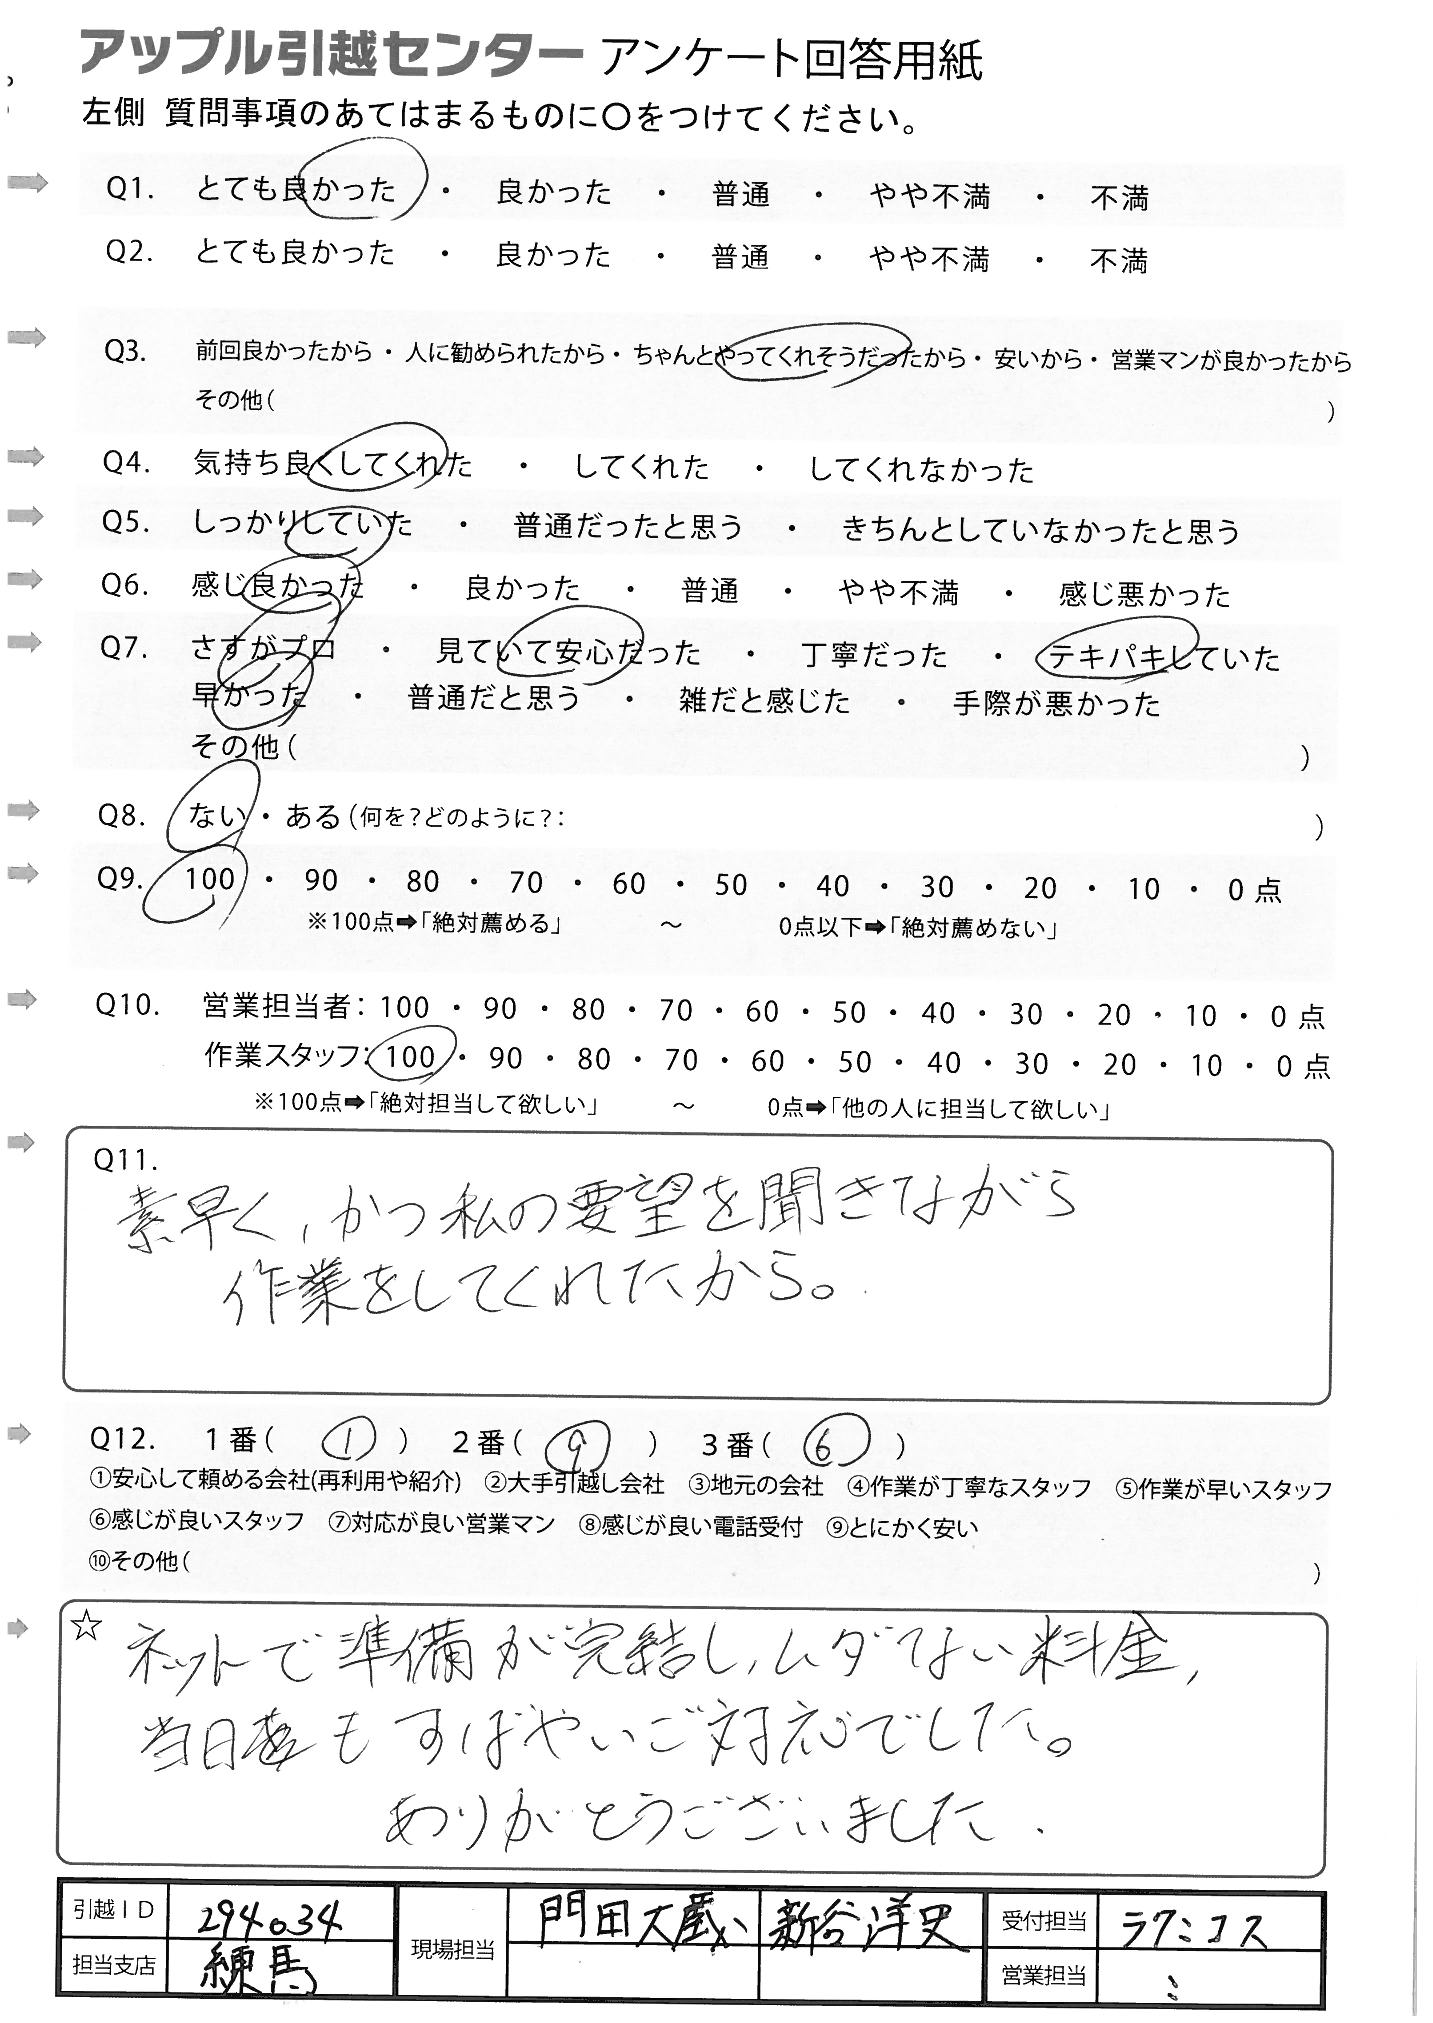 アップル引越センター アンケート回答用紙
左側 質問事項のあてはまるものに○をつけてください。
Q1. とても良かった ・ 良かった ・ 普通 ・ やや不満 ・ 不満
Q2. とても良かった ・ 良かった ・ 普通 ・ やや不満 ・ 不満
Q3. 前回良かったから・ 人に勧められたから・ ちゃんとやってくれそうだったから・ 安いから・ 営業マンが良かったから
その他( )
Q4. 気持ち良くしてくれた ・ してくれた ・ してくれなかった
Q5. しっかりしていた ・ 普通だったと思う ・ きちんとしていなかったと思う
Q6. 感じ良かった ・ 良かった ・ 普通 ・ やや不満 ・ 感じ悪かった
Q7. さすがプロ ・ 見ていて安心だった ・ 丁寧だった ・ テキパキしていた
早かった ・ 普通だと思う ・ 雑だと感じた ・ 手際が悪かった
その他( )
Q8. ない・ある(何を?どのように?: )
Q9. 100 ・ 90 ・ 80 ・ 70 ・ 60 ・ 50 ・ 40 ・ 30 ・ 20 ・ 10 ・ 0点
※100点➡「絶対薦める」 ～ 0点以下➡「絶対薦めない」
Q10. 営業担当者: 100 ・ 90 ・ 80 ・ 70 ・ 60 ・ 50 ・ 40 ・ 30 ・ 20 ・ 10 ・ 0点
作業スタッフ: 100 ・ 90 ・ 80 ・ 70 ・ 60 ・ 50 ・ 40 ・ 30 ・ 20 ・ 10 ・ 0点
※100点➡「絶対担当して欲しい」 ～ 0点➡「他の人に担当して欲しい」
Q11.
素早く、かつ私の要望を聞きながら
作業をしてくれたから。
Q12. 1番( ① ) 2番( ⑨ ) 3番( ⑥ )
①安心して頼める会社(再利用や紹介) ②大手引越し会社 ③地元の会社 ④作業が丁寧なスタッフ ⑤作業が早いスタッフ
⑥感じが良いスタッフ ⑦対応が良い営業マン ⑧感じが良い電話受付 ⑨とにかく安い
⑩その他( )
☆ ネットで準備が完結し、ムダでない料金、
当日もすばやいご対応でした。
ありがとうございました.
引越ID 294034 現場担当 門田大蔵 新谷洋史 受付担当 ラクニコス
担当支店 練馬 営業担当 :